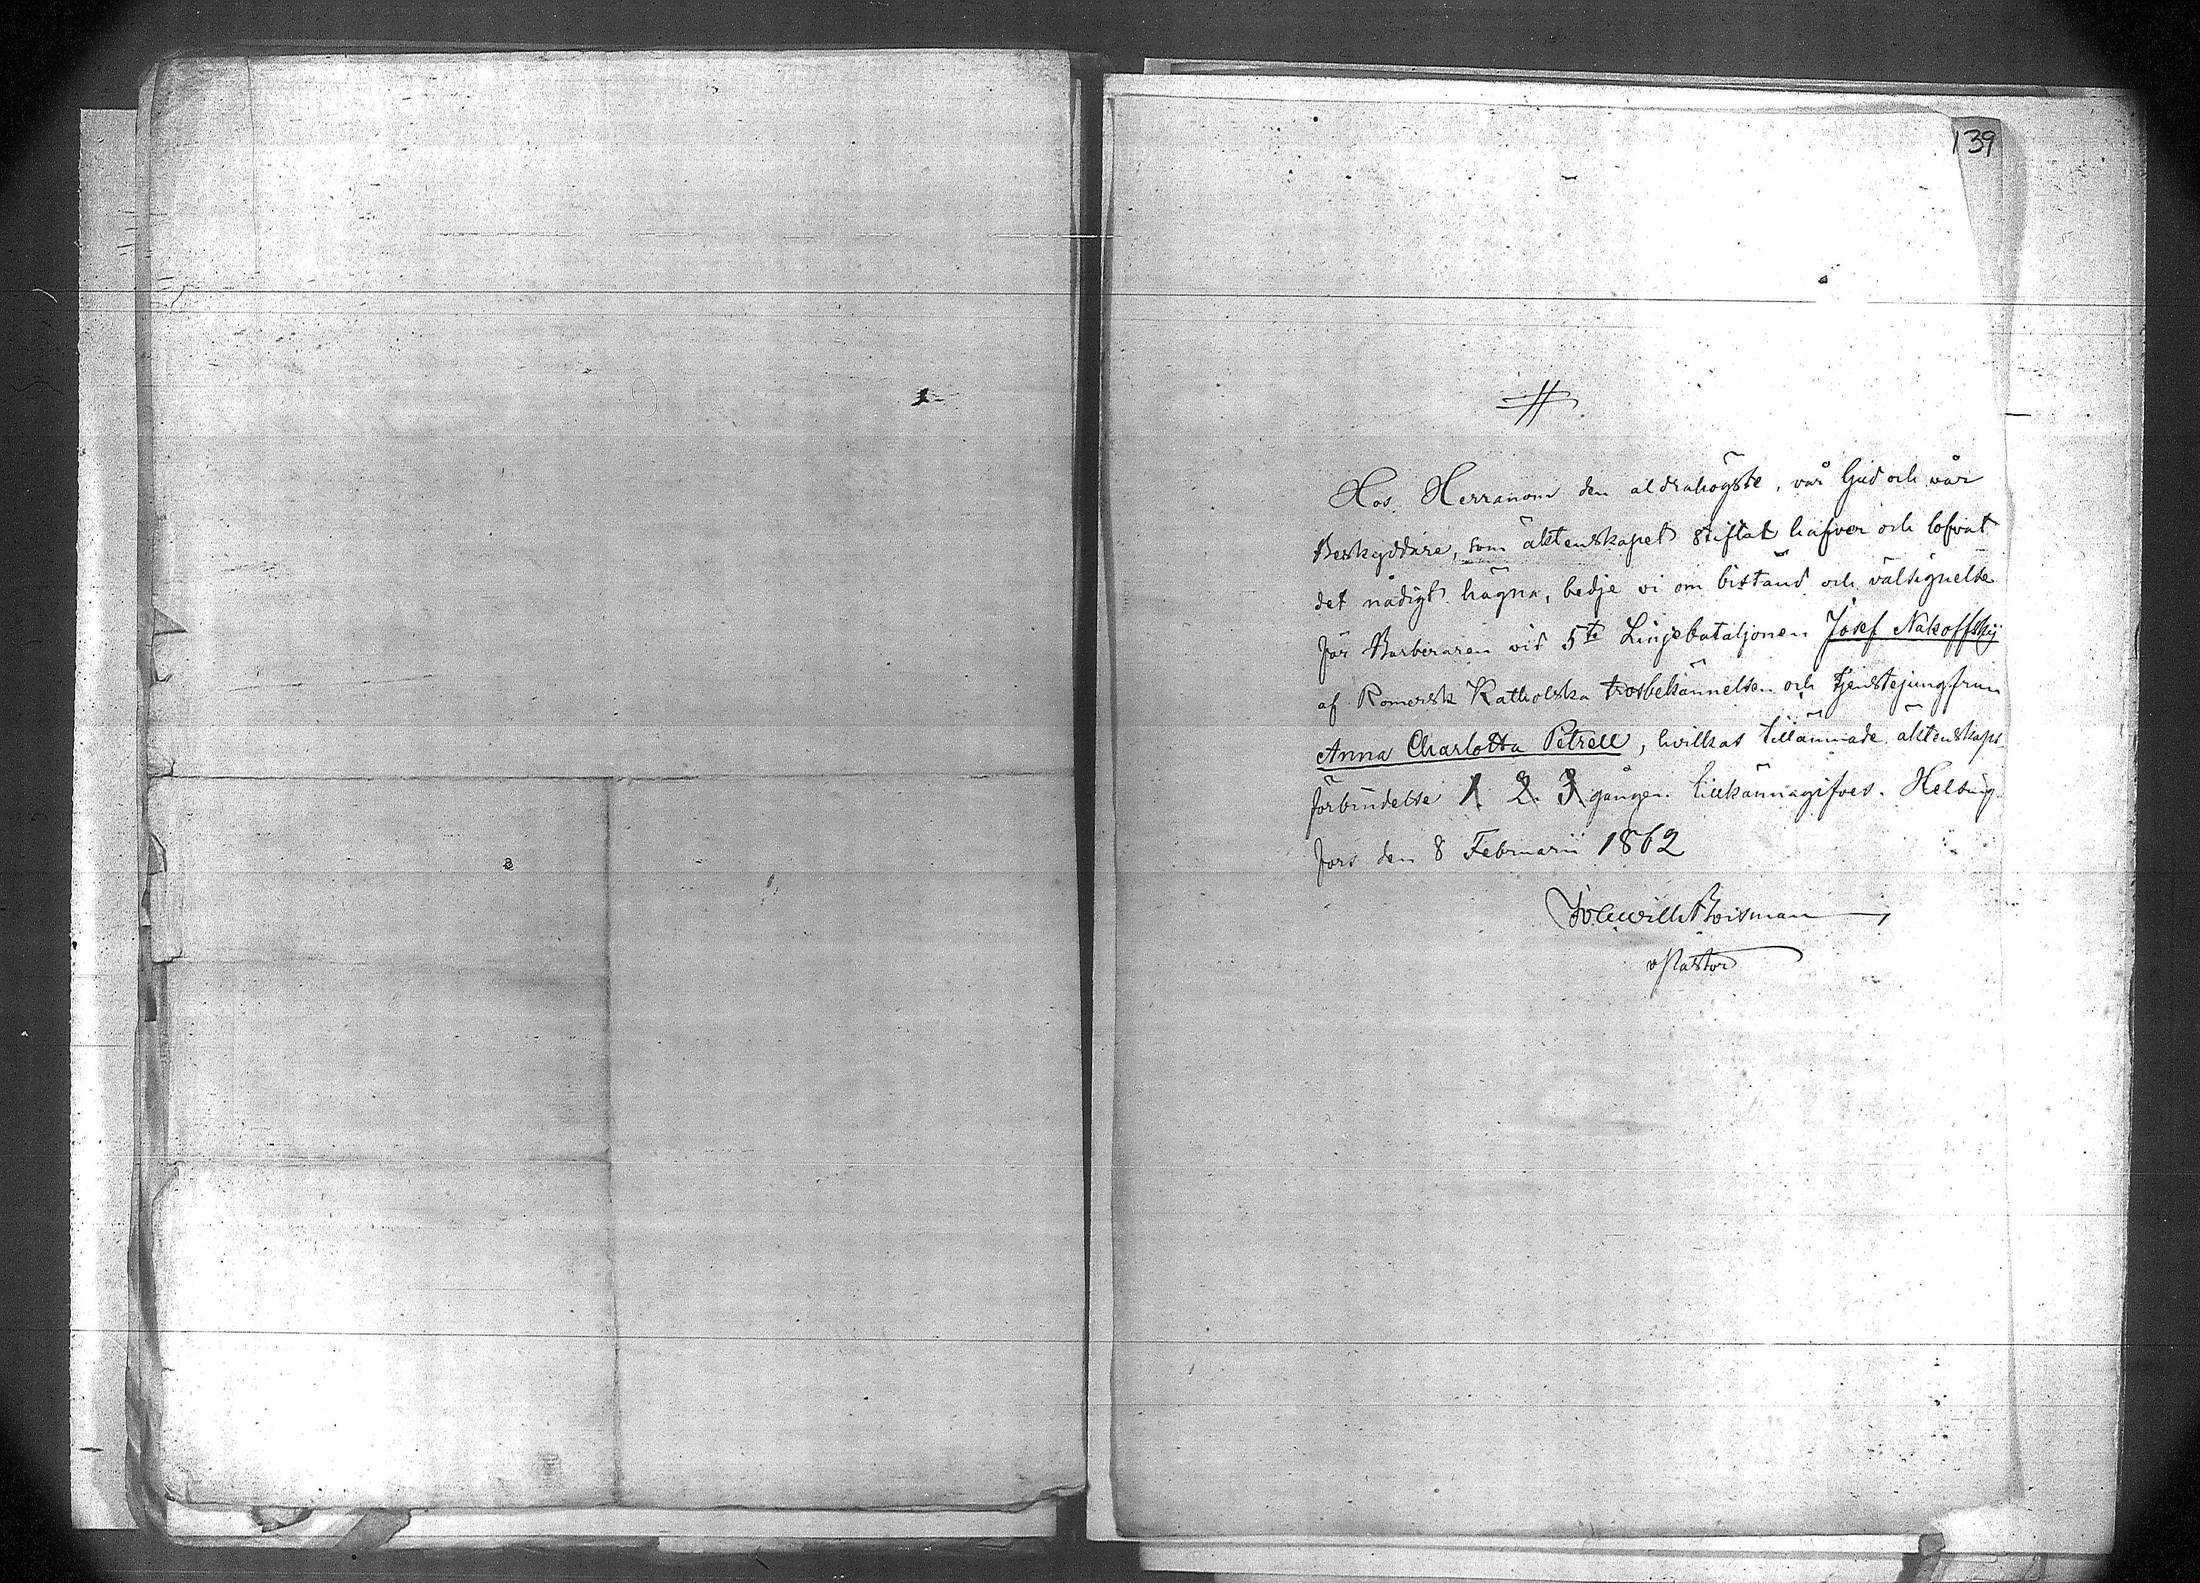 139
Hos Herranom den aldrahögste, vår Gud och vår
Beskyddare, som äktenskapet stiftat hafver och lofvat
det nådigt hägna, bedje vi om bistånd och välsignelse
för Barberaren vid 5te Linjebataljonen Josef Nakoffskij
af Romersk Katholska trosbekännelsen och tjenstejungfrun
Anna Charlotta Petrell, hvilkas tillämnade äktenskaps-
förbindelse 1 2. 3 gången tillkännagifves. Helsing-
fors den 8 Februarii 1862
Boisman
v Pastor